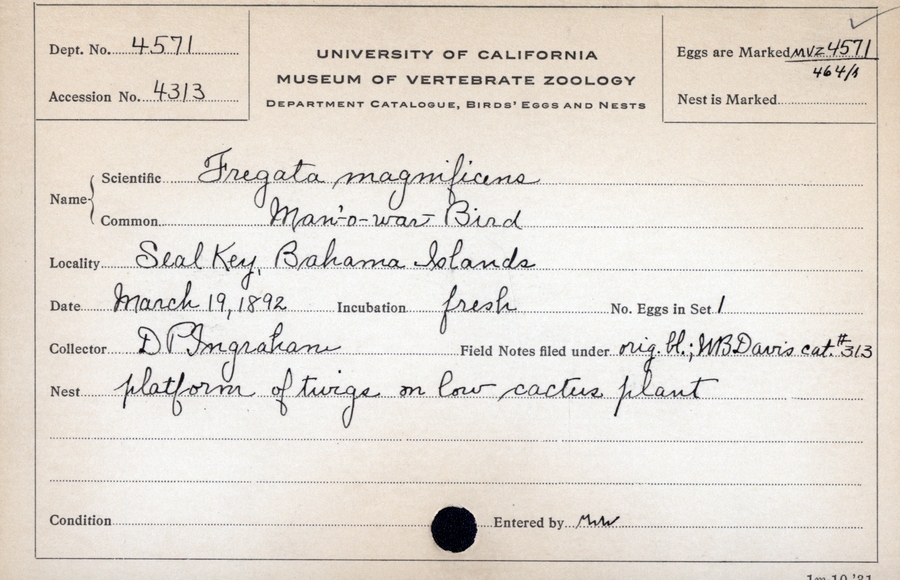 Dept. No. 4571
Accession No. 4313
UNIVERSITY OF CALIFORNIA
MUSEUM OF VERTEBRATE ZOOLOGY
DEPARTMENT CATALOGUE, BIRDS' EGGS AND NESTS
Eggs are Marked MVZ 4571
464/1
Nest is Marked
Name
Scientific Fregata magnificens
Common Man-o-war Bird
Locality Seal Key, Bahama Islands
Date March 19, 1892 Incubation fresh No. Eggs in Set 1
Collector D P Ingraham Field Notes filed under orig. bl.; WB Davis cat. #313
Nest platform of twigs on low cactus plant
Condition Entered by
1m 10 '31